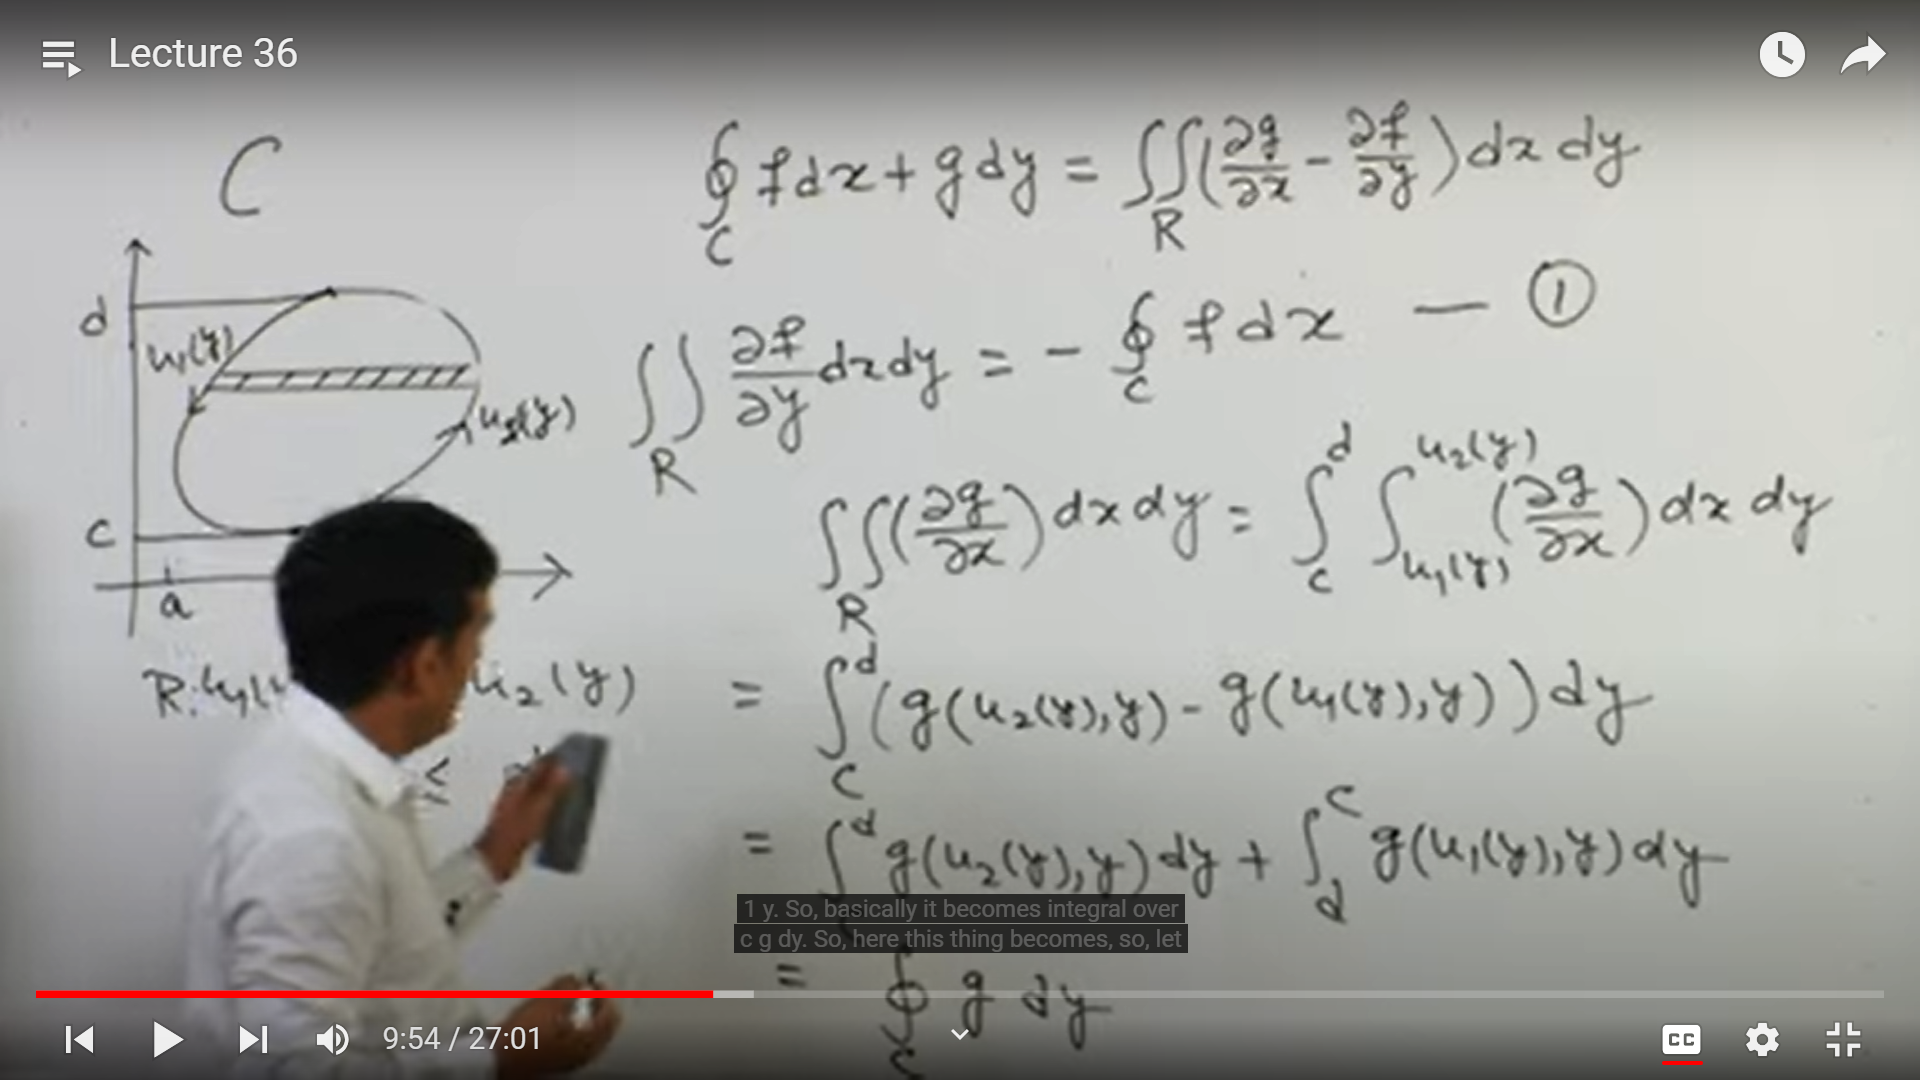 Lecture 36
C
∮_C f dx + g dy = ∬_R (∂g/∂x - ∂f/∂y) dx dy
d
u₁(y)
u₂(y)
c
a
∬_R ∂f/∂y dx dy = - ∮_C f dx — ①
∬_R (∂g/∂x) dx dy = ∫_c^d ∫_{u₁(y)}^{u₂(y)} (∂g/∂x) dx dy
R: u₁( u₂(y)
≤
= ∫_c^d (g(u₂(y), y) - g(u₁(y), y)) dy
= ∫^d g(u₂(y), y) dy + ∫_d^c g(u₁(y), y) dy
1 y. So, basically it becomes integral over
c g dy. So, here this thing becomes, so, let
= ∮_C g dy
9:54 / 27:01
CC